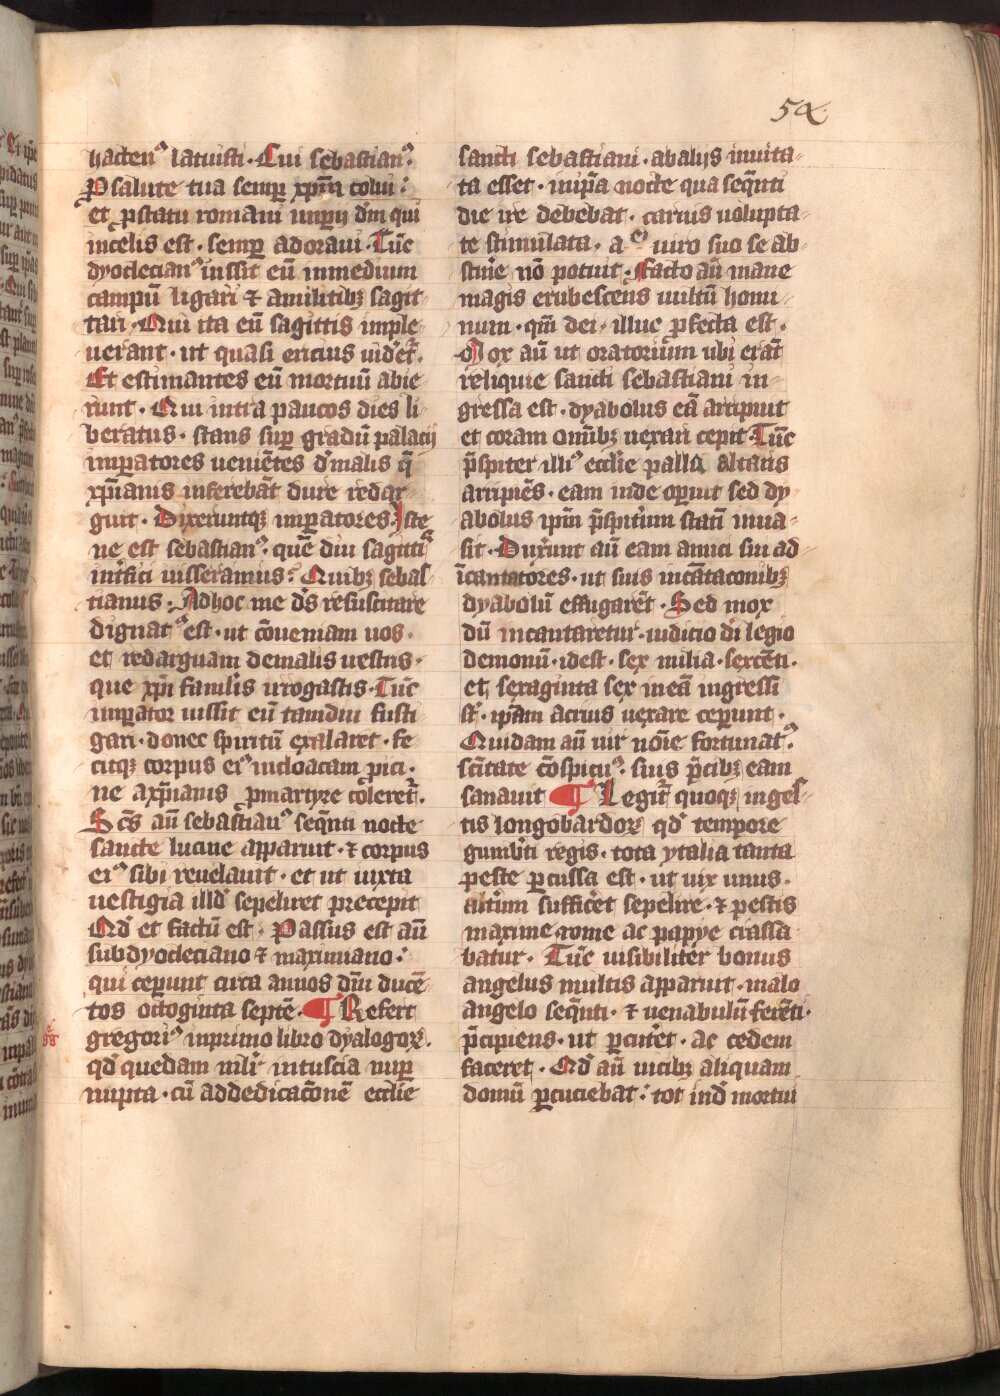 54
hacten⁹ latuisti · Cui sebastian⁹ .
P salute tua semp xp̄m colui :
et p statu romani impij dm̄ qui
in celis est · semp adoraui · Tūc
dyoclecian⁹ iussit eū in medium
campū ligari ⁊ a militibꝫ sagit-
tari · Qui ita eū sagittis imple-
uerant · ut quasi ericius uider̄t .
Et estimantes eū mortuū abie-
runt · Qui intra paucos dies li-
beratus · stans sup gradū palacij
impatores ueniētes d' malis q̄
xp̄ianis inferebāt dure redar-
guit · Dixeruntqꝫ impatores · Iste
ne est sebastian⁹ · quē diu sagittis
int'fici iusseramus · Quibꝫ sebas-
tianus · Ad hoc me d's resuscitare
dignat⁹ est · ut cōueniam uos ·
et redarguam de malis uestris ·
que xp̄i famlis irrogastis · Tūc
impator iussit eū tamdiu fusti-
gari · donec spiritū exalaret · fe-
citqꝫ corpus ei⁹ in cloacam pici ·
ne a xp̄ianis p martyre coleret' .
Scs̄ aū sebastian⁹ seqn̄ti nocte
sancte lucine apparuit · ⁊ corpus
ei⁹ sibi reuelauit · et ut iuxta
uestigia illd' sepeliret precepit
Qd' et factū est · Passus est aū
sub dyocleciano ⁊ maximiano :
qui cepunt circa annos dn̄i ducē-
tos octoginta septē · ¶ Refert
gregori⁹ in primo libro dyalogoꝝ .
qd' quedam mlr̄ in tuscia nup
nupta · cū ad dedicac̄onē ecclie
sancti sebastiani · ab alijs inuita-
ta esset · in ip̄a nocte qua seqn̄ti
die ire debebat · carnis uolupta-
te stimulata · a uiro suo se ab-
stin'e nō potuit · Facto aū mane
magis erubescens uultū homi-
num · qm̄ dei · illuc pfecta est ·
Mox aū ut oratorium ubi erāt
reliquie sancti sebastiani in-
gressa est · dyabolus eā arripuit
et coram omībꝫ uexari cepit · Tūc
p̄spiter illi⁹ ecclie palla altaris
arripiēs · eam inde opuit sed dy-
abolus ip̄m p̄spit'um statī inua-
sit · Duxunt aū eam amici sui ad
īcantatores · ut suis incātac̄onibꝫ
dyabolū effugarēt · Sed mox
dū incantaretur · iudicio di legio
demonū · idest · sex milia · sexcēti ·
et sexaginta sex in eā ingressi
st' · ipam acrius uexare ceperunt ·
Quidam aū uir noīe fortunat⁹ .
sc̄itate cōspicu⁹ · suis p̄cibꝫ eam
sanauit ¶ Legit' quoqꝫ in ges-
tis longobardoꝝ qd' tempore
gumb'ti regis · tota ytalia tanta
peste pcussa est · ut uix unus ·
alt'um sufficet sepelire · ⁊ pestis
maxime rome ac papye crassa
batur · Tūc uisibiliter bonus
angelus multis apparuit · malo
angelo seqn̄ti · ⁊ uenabulū ferēti ·
p̄cipiens · ut pcut'et · ac cedem
faceret · Qd' aū uicibꝫ aliquam
domū pcuciebat : tot ind' mortui